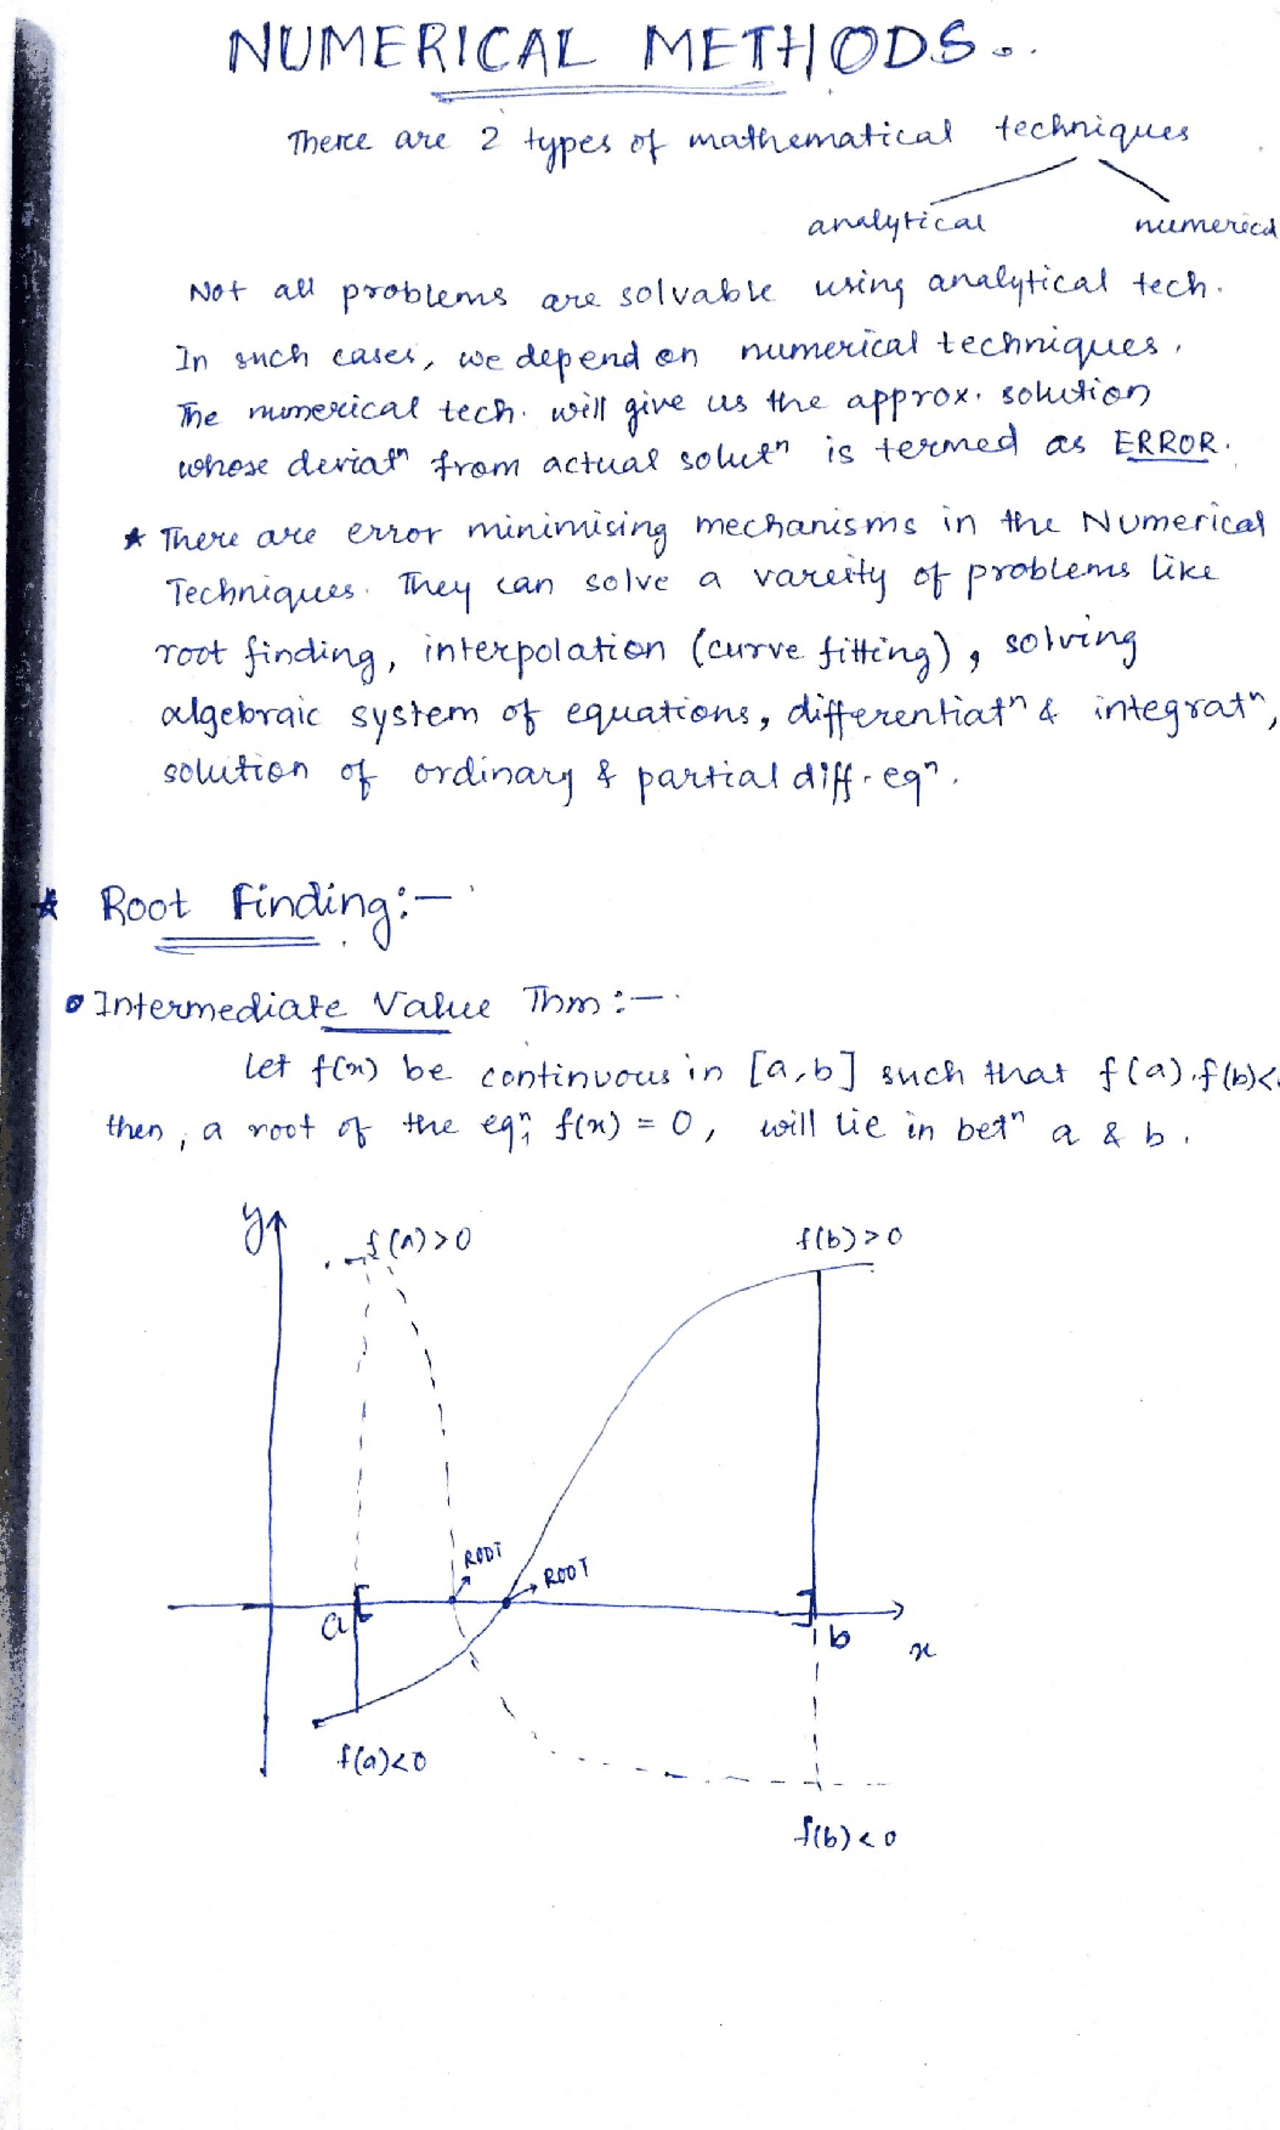 NUMERICAL METHODS..
There are 2 types of mathematical techniques
analytical numerical
Not all problems are solvable using analytical tech.
In such cases, we depend on numerical techniques.
The numerical tech. will give us the approx. solution
whose deviatⁿ from actual solutⁿ is termed as ERROR.
* There are error minimising mechanisms in the Numerical
Techniques. They can solve a vareity of problems like
root finding, interpolation (curve fitting), solving
algebraic system of equations, differentiatⁿ & integratⁿ,
solution of ordinary & partial diff. eqⁿ.
* Root Finding:-
• Intermediate Value Thm:-
Let f(x) be continuous in [a,b] such that f(a).f(b)<
then, a root of the eqⁿ, f(x) = 0, will lie in betⁿ a & b.
y
f(a)>0 f(b)>0
ROOT
ROOT
a b x
f(a)<0
f(b)<0